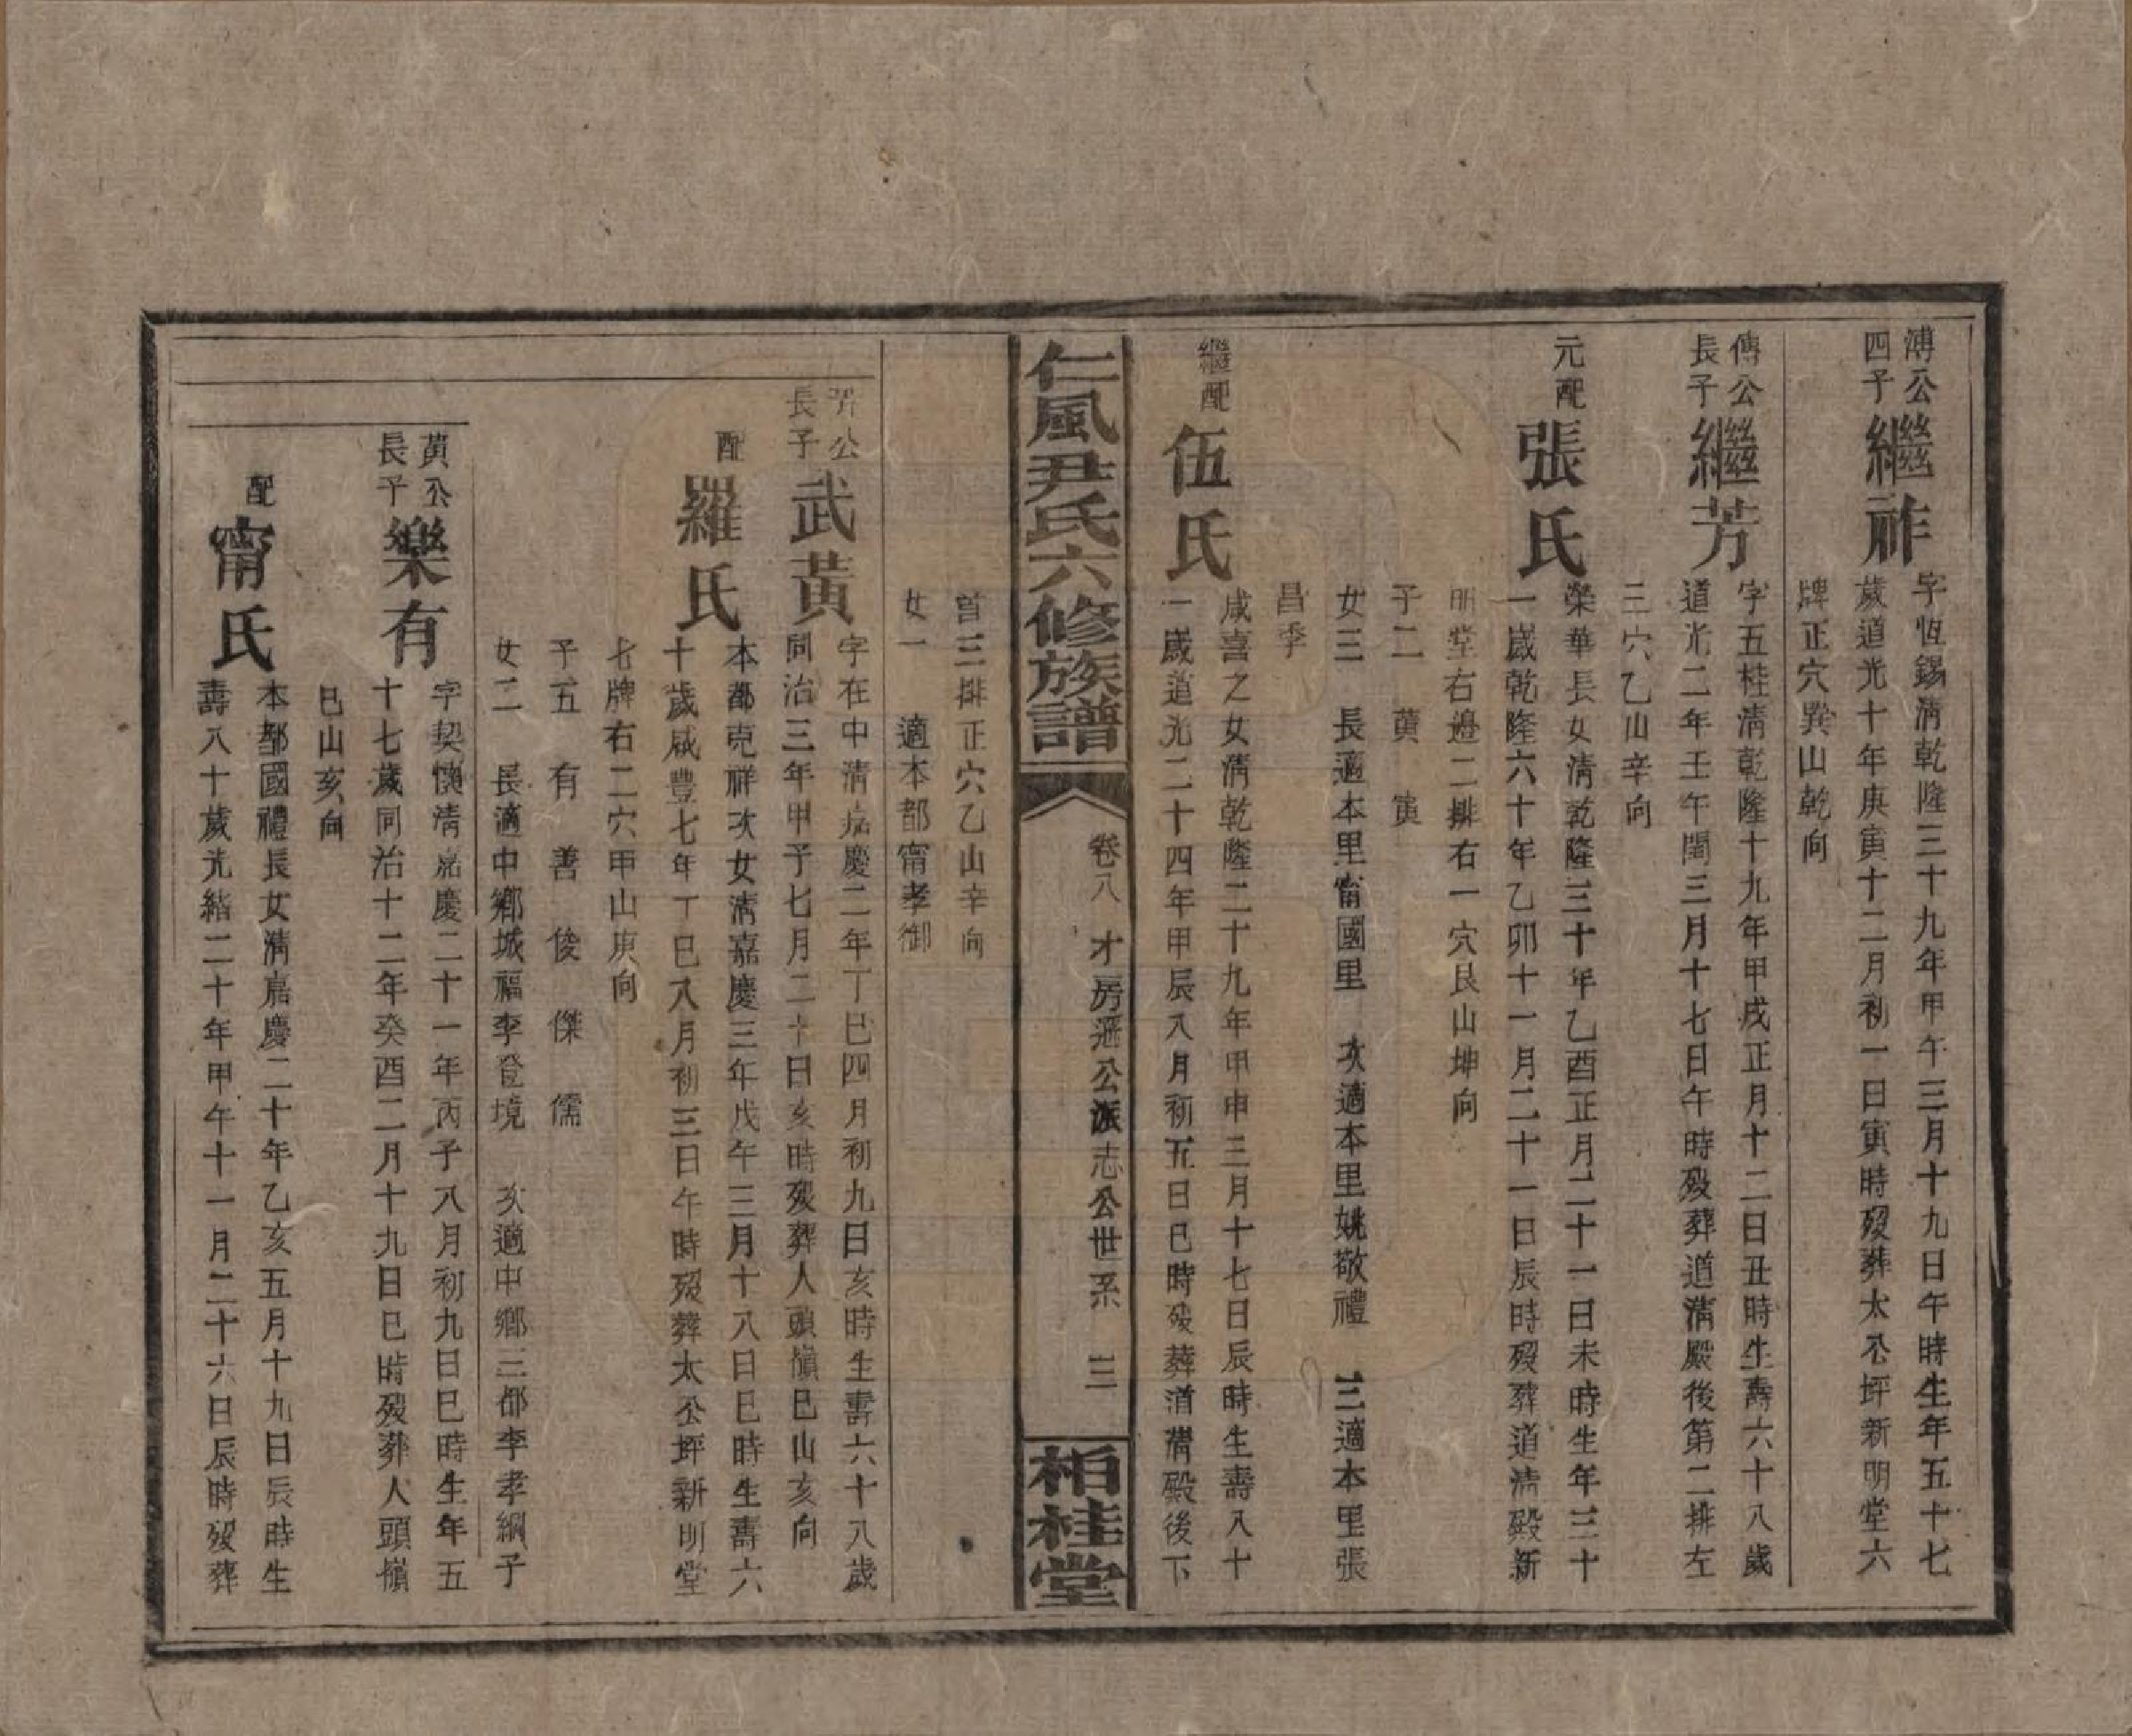 溥公
四子
繼祚
字恆錫清乾隆三十九年甲午三月十九日午時生年五十七
歲道光十年庚寅十二月初一日寅時歿葬太公坪新明堂六
牌正穴巽山乾向
傳公
長子
繼芳
字五桂清乾隆十九年甲戌正月十二日丑時生壽六十八歲
道光二年壬午閏三月十七日午時歿葬道清殿後第二排左
三穴乙山辛向
元配
張氏
榮華長女清乾隆三十年乙酉正月二十一日未時生年三十
一歲乾隆六十年乙卯十一月二十一日辰時歿葬道清殿新
明堂右邊二排右一穴艮山坤向
子二　黃　寅
女三　長適本里甯國里　次適本里姚敬禮　三適本里張
昌季
繼配
伍氏
咸喜之女清乾隆二十九年甲申三月十七日辰時生壽八十
一歲道光二十四年甲辰八月初五日巳時歿葬道清殿後下
仁風尹氏六修族譜
卷八　才房派公派志公世系　三
柏桂堂
首三排正穴乙山辛向
女一　適本都甯孝御
芳公
長子
武黃
字在中清嘉慶二年丁巳四月初九日亥時生壽六十八歲
同治三年甲子七月二十日亥時歿葬人頭嶺巳山亥向
配
羅氏
本都克祥次女清嘉慶三年戊午三月十八日巳時生壽六
十歲咸豐七年丁巳八月初三日午時歿葬太公坪新明堂
七牌右二穴甲山庚向
子五　有　善　俊　傑　儒
女二　長適中鄉城福李登境　次適中鄉三都李孝綱子
黃公
長子
樂有
字契懷清嘉慶二十一年丙子八月初九日巳時生年五
十七歲同治十二年癸酉二月十九日巳時歿葬人頭嶺
巳山亥向
配
甯氏
本都國禮長女清嘉慶二十年乙亥五月十九日辰時生
壽八十歲光緒二十年甲午十一月二十六日辰時歿葬